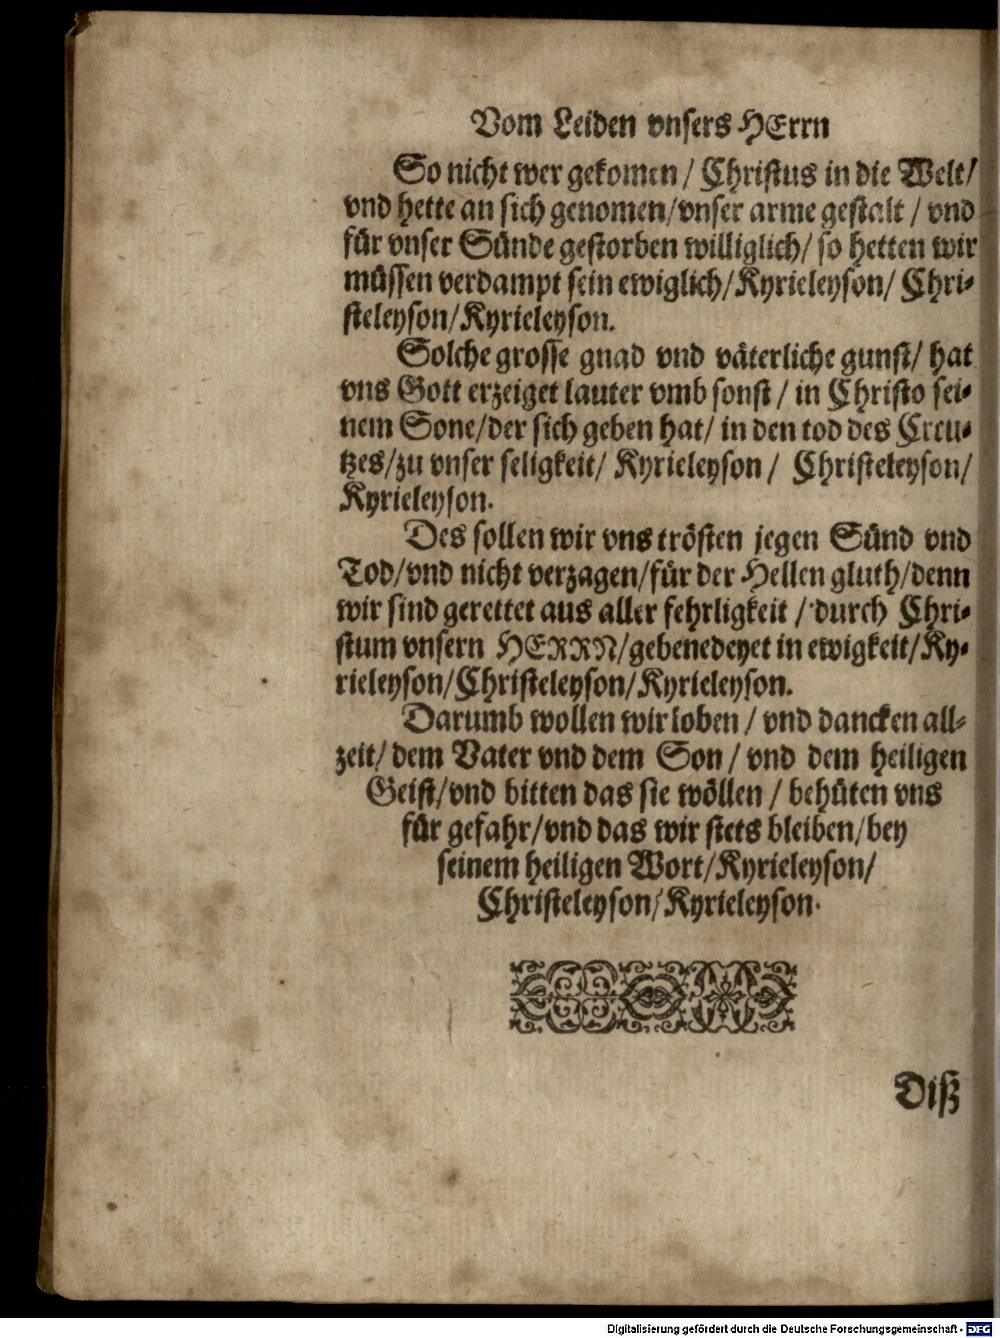 Vom Leiden vnsers HErrn
So nicht wer gekomen / Christus in die Welt/
vnd hette an sich genomen/vnser arme gestalt / vnd
für vnser Sünde gestorben williglich/ so hetten wir
müssen verdampt sein ewiglich/Kyrieleyson/ Chri-
steleyson/Kyrieleyson.
Solche grosse gnad vnd väterliche gunst/ hat
vns Gott erzeiget lauter vmb sonst / in Christo sei-
nem Sone/der sich geben hat/ in den tod des Creu-
tzes/zu vnser seligkeit/ Kyrieleyson / Christeleyson/
Kyrieleyson.
Des sollen wir vns trösten jegen Sünd vnd
Tod/vnd nicht verzagen/für der Hellen gluth/denn
wir sind gerettet aus aller fehrligkeit / durch Chri-
stum vnsern HERRN/gebenedeyet in ewigkeit/Ky-
rieleyson/Christeleyson/Kyrieleyson.
Darumb wollen wir loben / vnd dancken all-
zeit/ dem Vater vnd dem Son / vnd dem heiligen
Geist/vnd bitten das sie wöllen / behüten vns
für gefahr/vnd das wir stets bleiben/bey
seinem heiligen Wort/Kyrieleyson/
Christeleyson/Kyrieleyson.
Diß
Digitalisierung gefördert durch die Deutsche Forschungsgemeinschaft - DFG